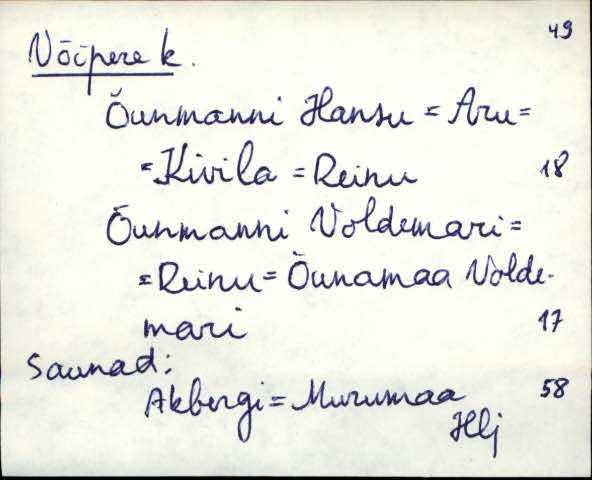 49
Võipere k.
Õunmanni Hansu = Aru =
= Kivila = Reinu 18
Õunmanni Voldemari =
= Reinu = Õunamaa Volde-
mari 17
Saunad:
Akbergi = Murumaa 58
Hlj